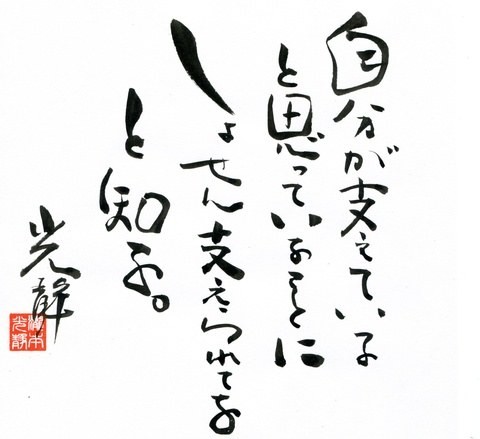 自分が支えている
と思っていることに
しょせん支えられてる
と知る。
光静